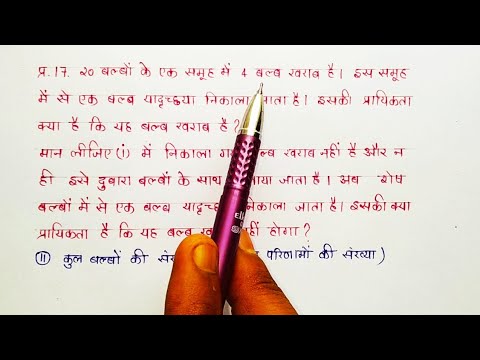 प्र.17. 20 बल्बों के एक समूह में 4 बल्ब खराब है। इस समूह
में से एक बल्ब यादृच्छया निकाला जाता है। इसकी प्रायिकता
क्या है कि यह बल्ब खराब है?
मान लीजिए (i) में निकाला बल्ब खराब नहीं है और न
ही इसे दुबारा बल्बों के साथ जाता है। अब शेष
बल्बों में से एक बल्ब निकाला जाता है। इसकी क्या
प्रायिकता है कि यह बल्ब नहीं होगा?
(II) कुल बल्बों की परिणामों की संख्या)